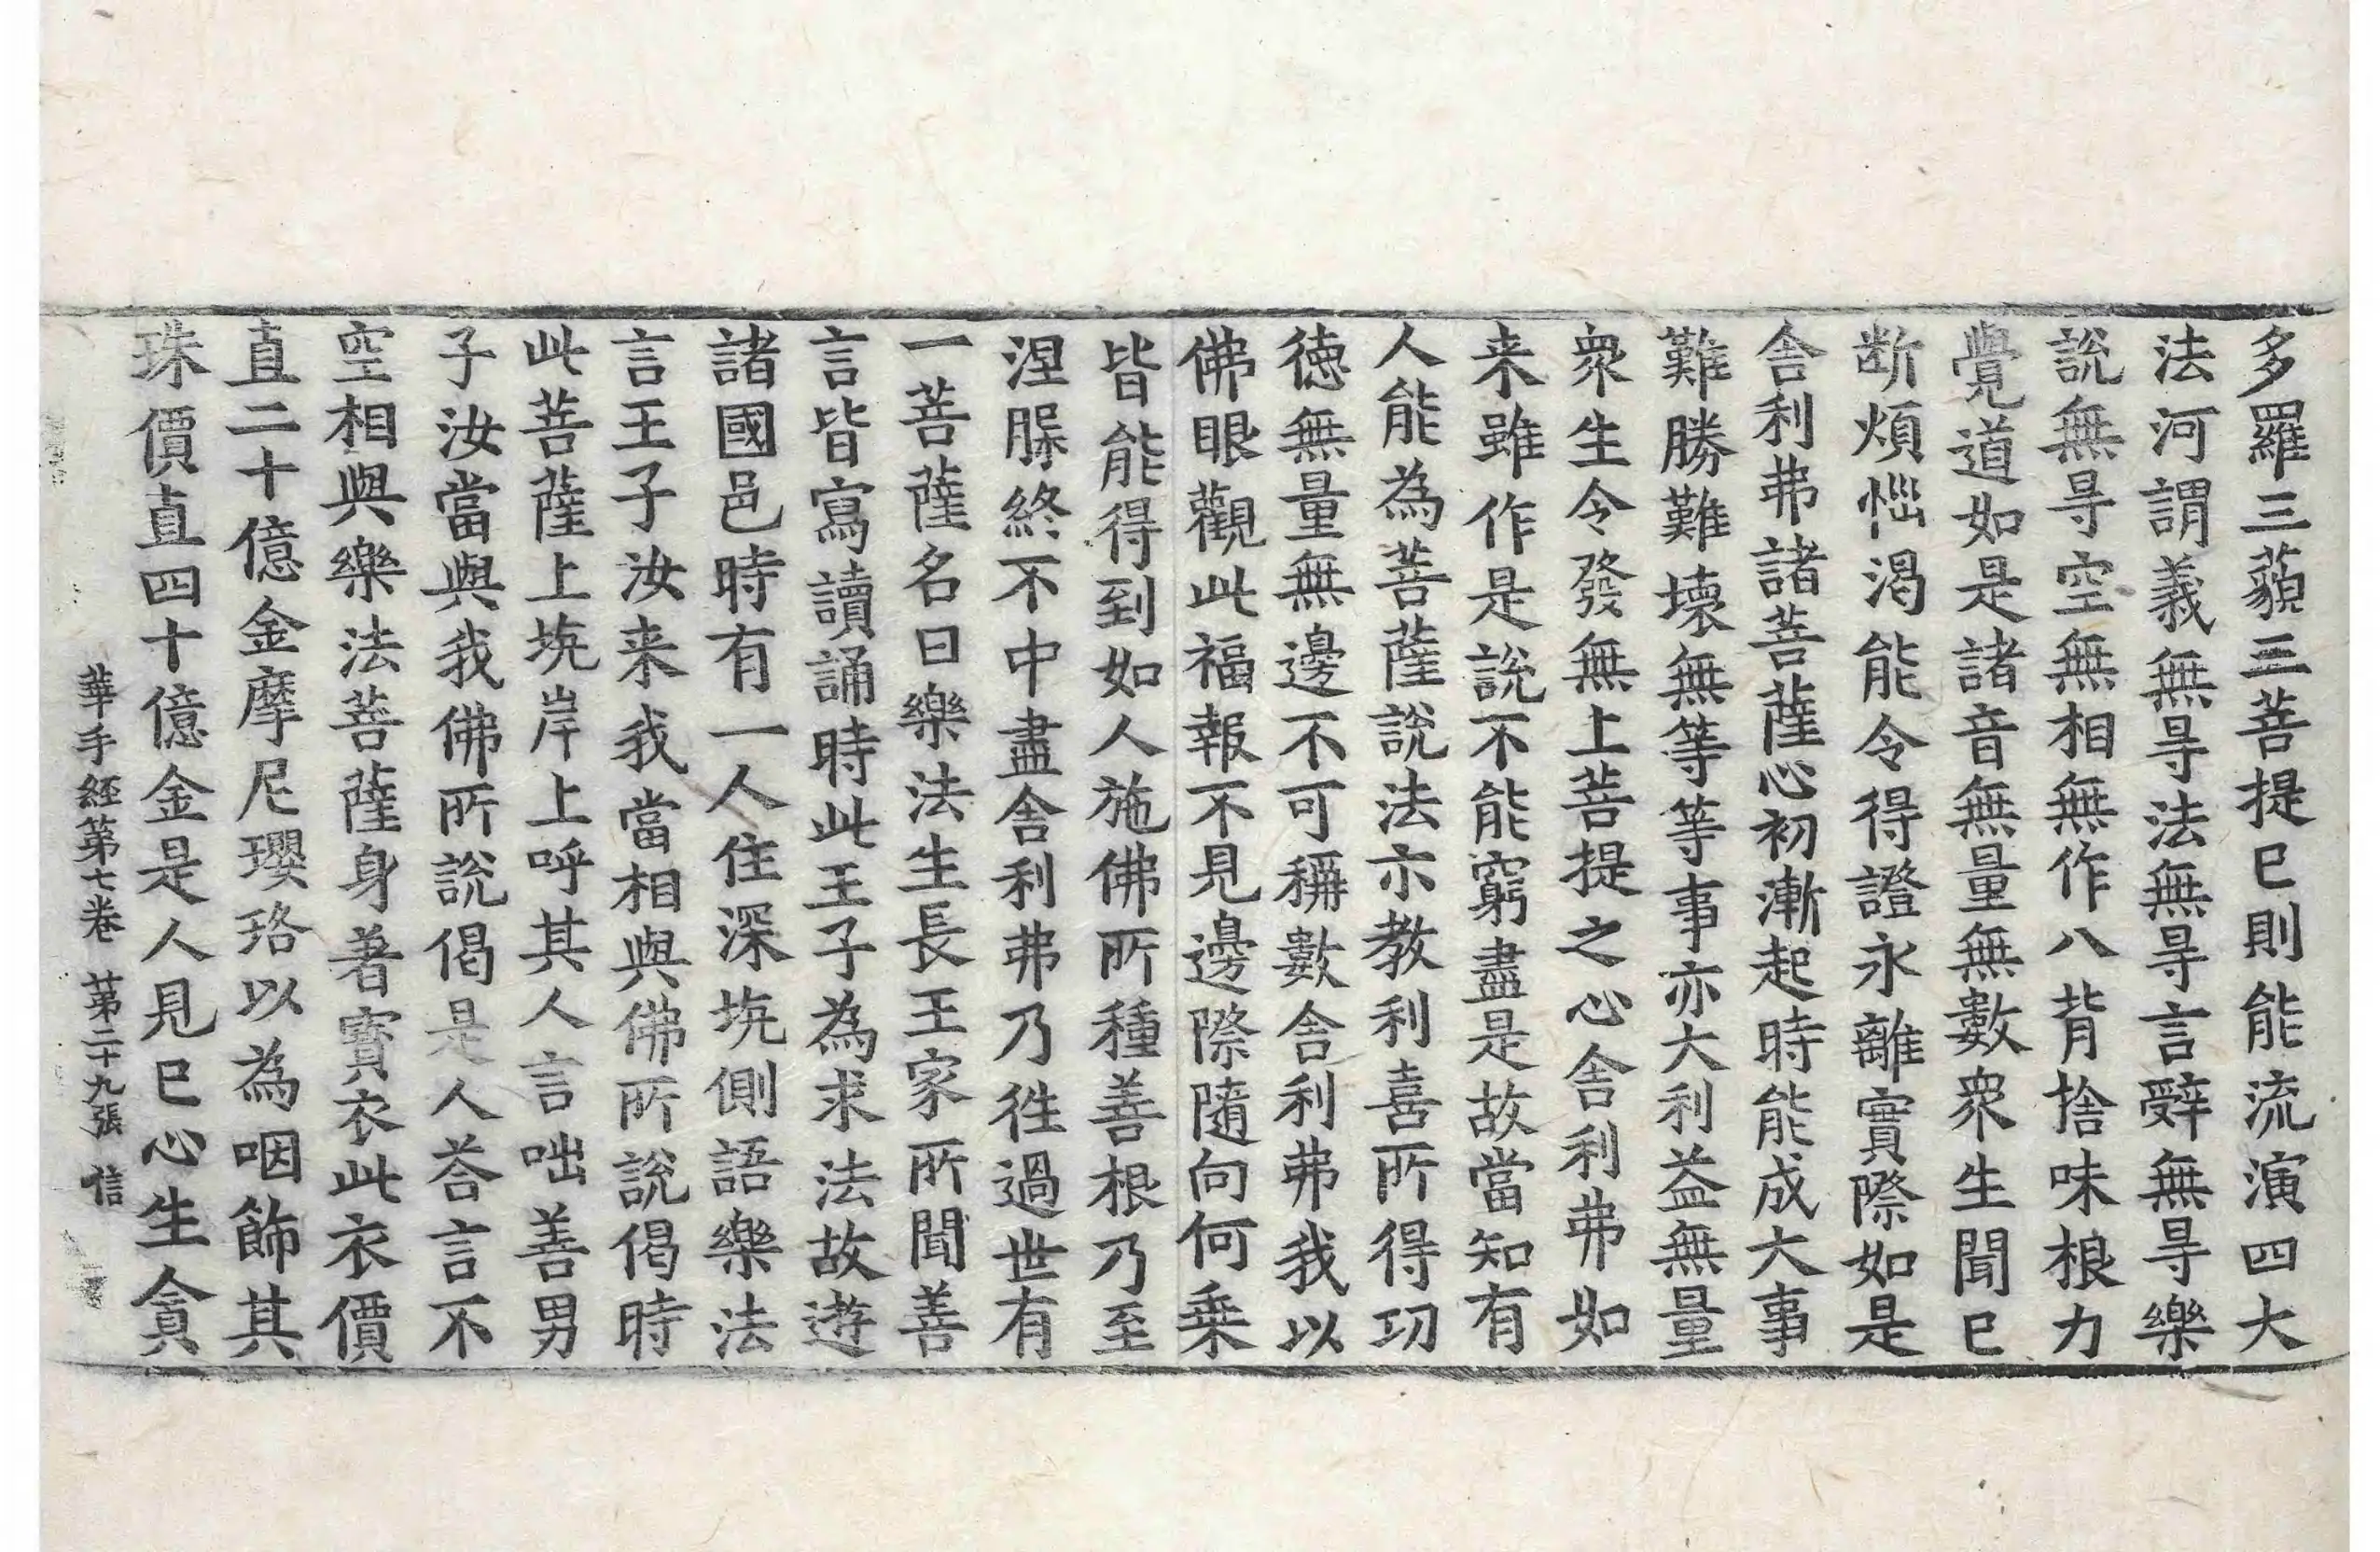 多羅三藐三菩提已則能流演四大
法河謂義無㝵法無㝵言辝無㝵樂
說無㝵空無相無作八背捨味根力
覺道如是諸音無量無數衆生聞已
断煩惱渴能令得證永離實際如是
舎利弗諸菩薩心初漸起時能成大事
難勝難壊無等等事亦大利益無量
衆生令發無上菩提之心舎利弗如
来雖作是說不能窮盡是故當知有
人能為菩薩說法示教利喜所得㓛
徳無量無邊不可稱數舎利弗我以
佛眼觀此福報不見邊際隨向何乗
皆能得到如人施佛所種善根乃至
涅槃終不中盡舎利弗乃徃過世有
一菩薩名曰樂法生長王家所聞善
言皆寫讀誦時此王子為求法故遊
諸國邑時有一人住深坑側語樂法
言王子汝来我當相與佛所說偈時
此菩薩上坑岸上呼其人言咄善男
子汝當與我佛所說偈是人荅言不
空相與樂法菩薩身著寳衣此衣價
直二十億金摩尼瓔珞以為咽飾其
珠價直四十億金是人見已心生貪
華手経第七卷 第二十九張 信